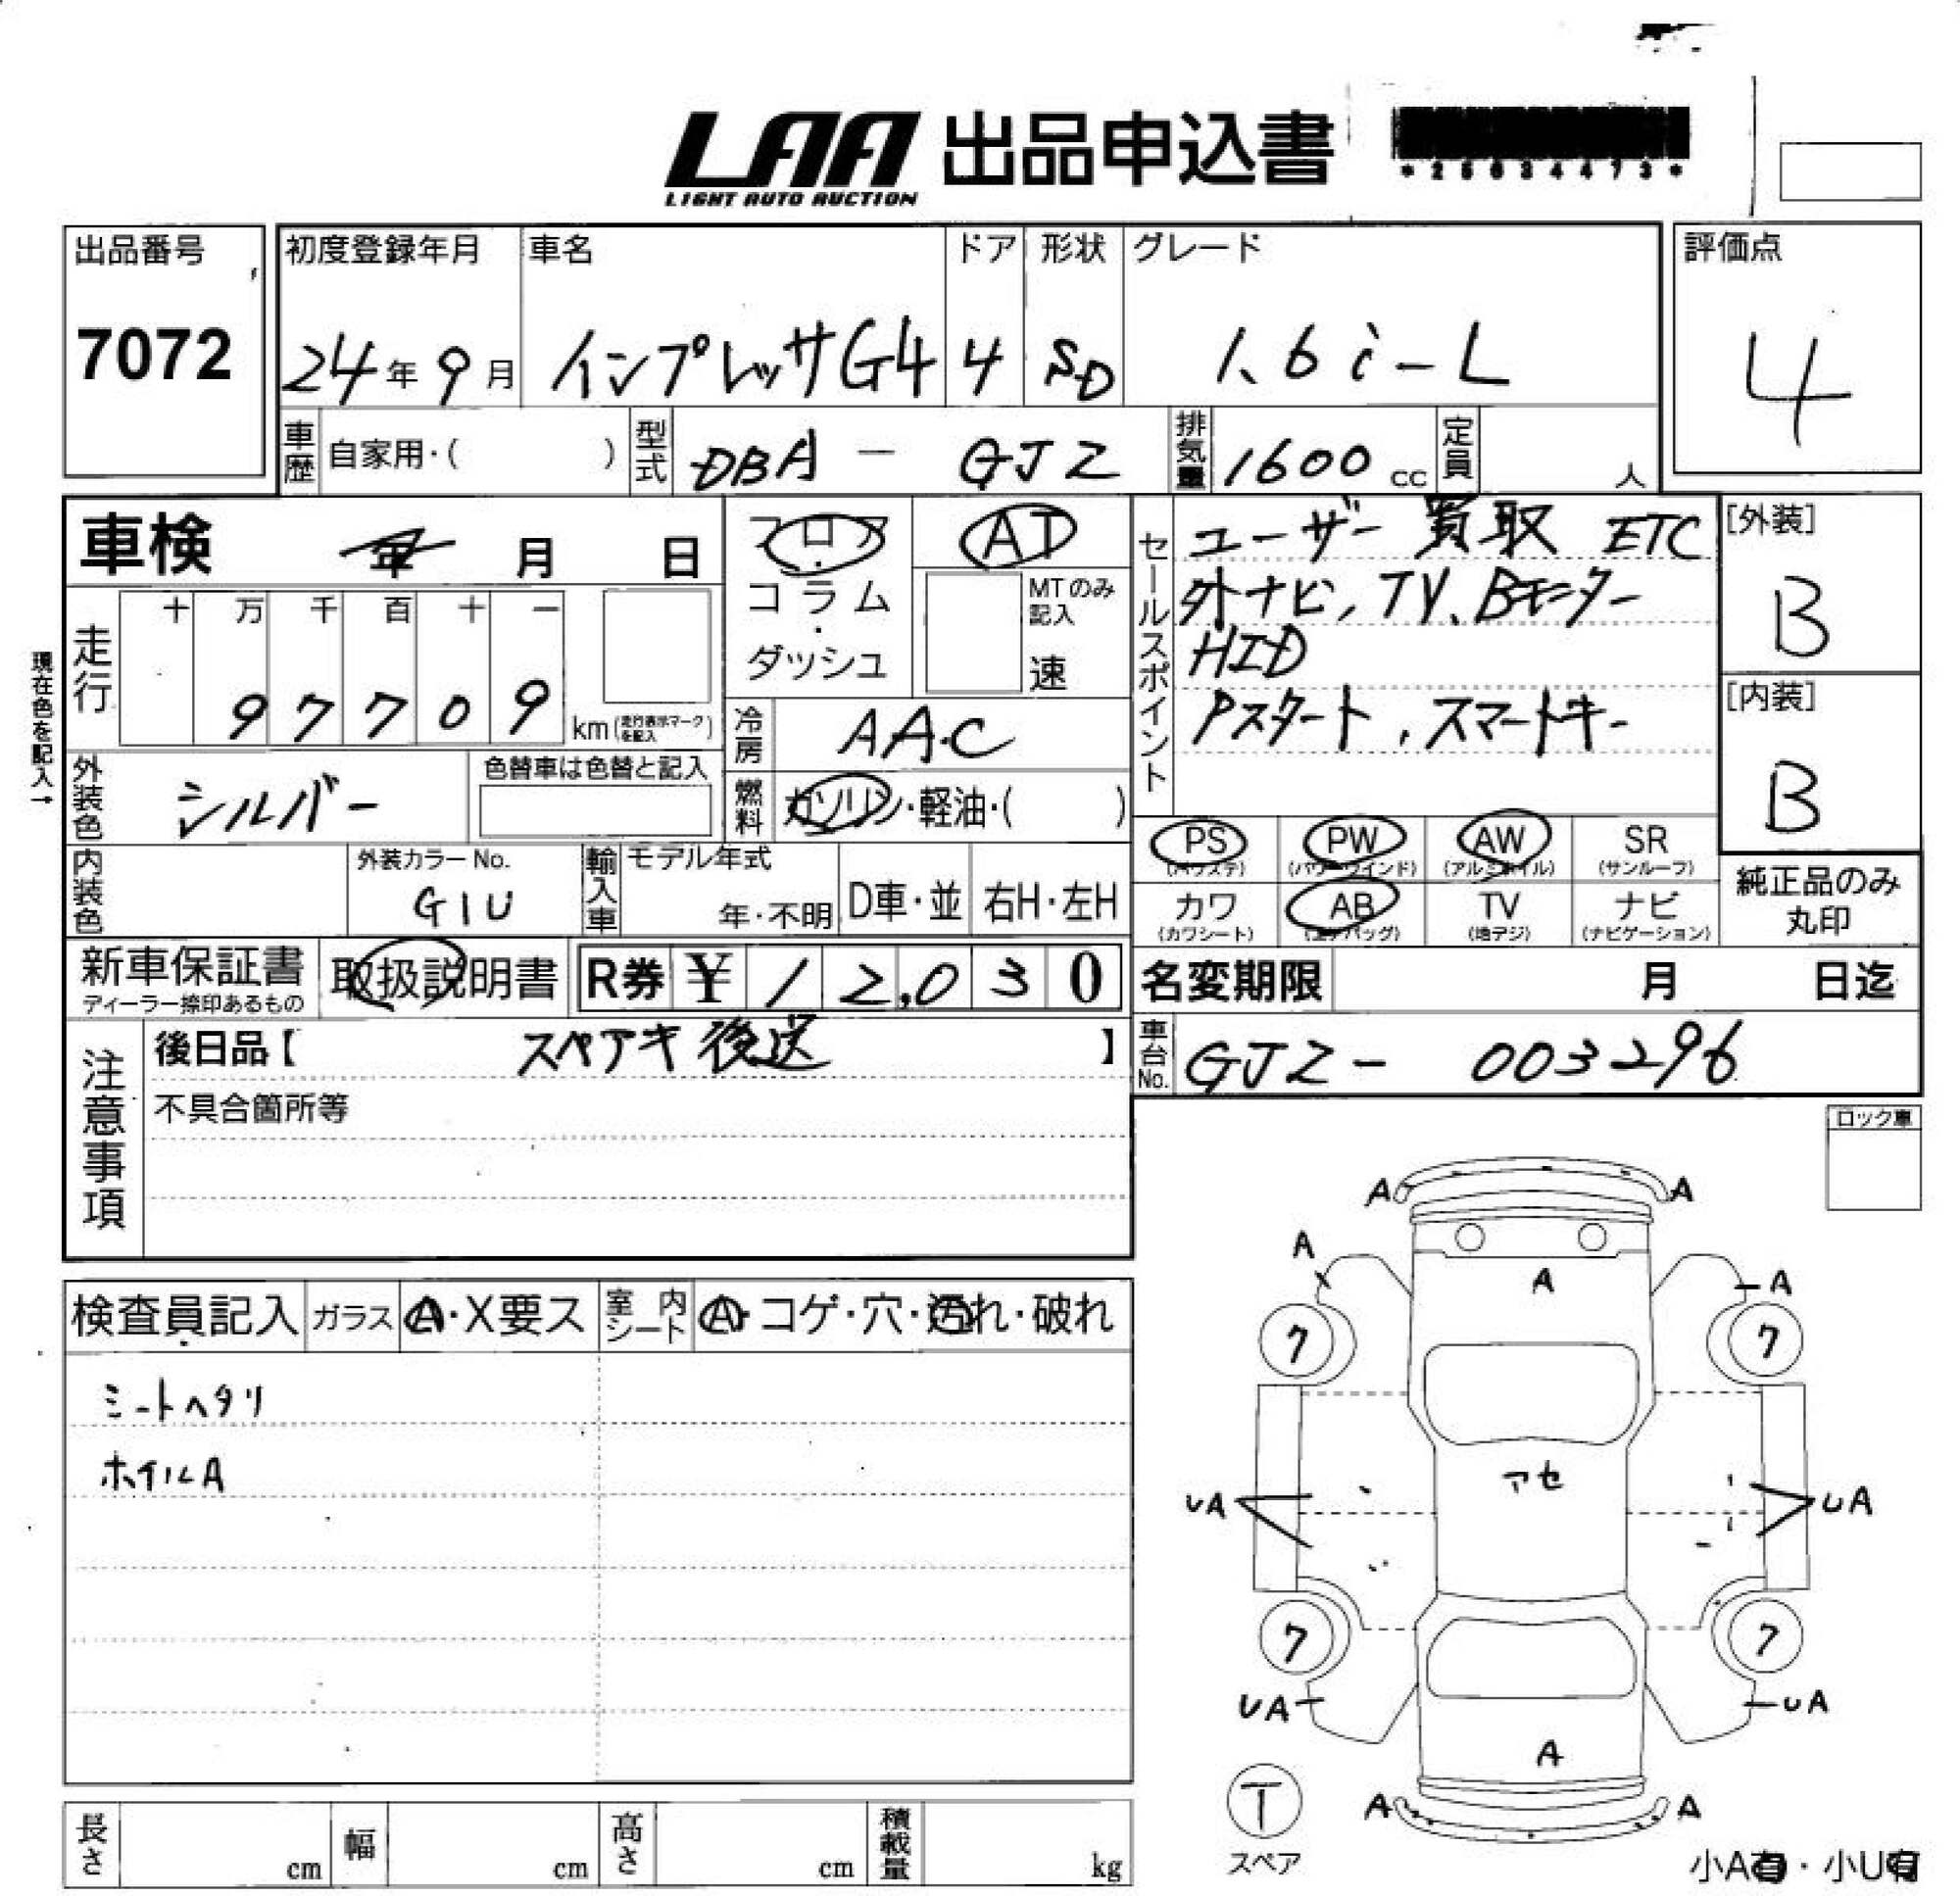 LAA 出品申込書
LIGHT AUTO AUCTION
*25634473*
出品番号
7072
初度登録年月
24年9月
車名
インプレッサG4
ドア
4
形状
SD
グレード
1.6i-L
評価点
4
車歴 自家用・( )
型式 DBA - GJ2
排気量 1600cc
定員 人
車検 年 月 日
フロア・コラム・ダッシュ
AT
MTのみ記入
速
セールスポイント
ユーザー買取 ETC
外ナビ, TV、Bモニター
HID
Pスタート, スマートキー
[外装]
B
[内装]
B
現在色を記入→
走行
十 万 千 百 十 一
9 7 7 0 9 km(走行表示マークを記入)
冷房 AAC
外装色 シルバー
色替車は色替と記入
燃料 ガソリン・軽油・( )
PS (パワステ)
PW (パワーウインド)
AW (アルミホイル)
SR (サンルーフ)
カワ (カワシート)
AB (エアバッグ)
TV (地デジ)
ナビ (ナビゲーション)
純正品のみ丸印
内装色
外装カラーNo.
G1U
輸入車
モデル年式
年・不明
D車・並
右H・左H
新車保証書
ディーラー捺印あるもの
取扱説明書
R券 ¥ 12,030
名変期限 月 日迄
車台No. GJ2- 003296
注意事項
後日品【 スペアキ後送 】
不具合箇所等
ロック車
検査員記入
ガラス A・X要ス
室内シート A・コゲ・穴・汚れ・破れ
シートヘタリ
ホイルA
A A
A
A
A
7 7
アセ
UA UA
7 7
UA UA
A
A A
T
スペア
小A有・小U有
長さ cm
幅 cm
高さ cm
積載量 kg